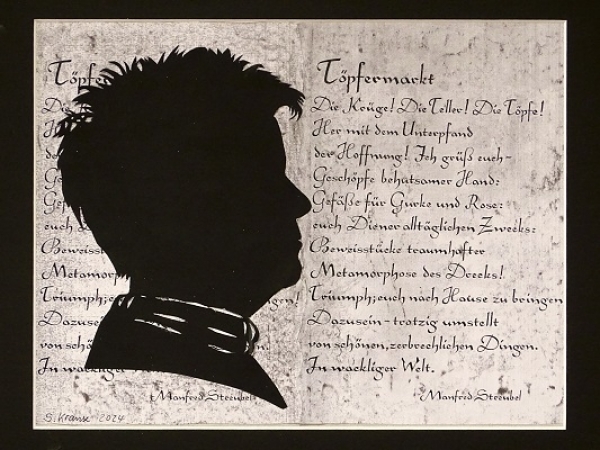 Töpfe
Die K
H
de
Ge
Gef
euch D
Beweisst
Metamorp
Triumph; e
Dazusein
von schönen
In wackliger
Manfred Streubel
Töpfermarkt
Die Krüge! Die Teller! Die Töpfe!
Her mit dem Unterpfand
der Hoffnung! Ich grüß euch-
Geschöpfe behutsamer Hand:
Gefäße für Gurke und Rose:
euch Diener alltäglichen Zwecks:
Beweisstücke traumhafter
Metamorphose des Drecks!
Triumph; euch nach Hause zu bringen
Dazusein - trotzig umstellt
von schönen, zerbrechlichen Dingen.
In wackliger Welt.
Manfred Streubel
S. Krause 2024